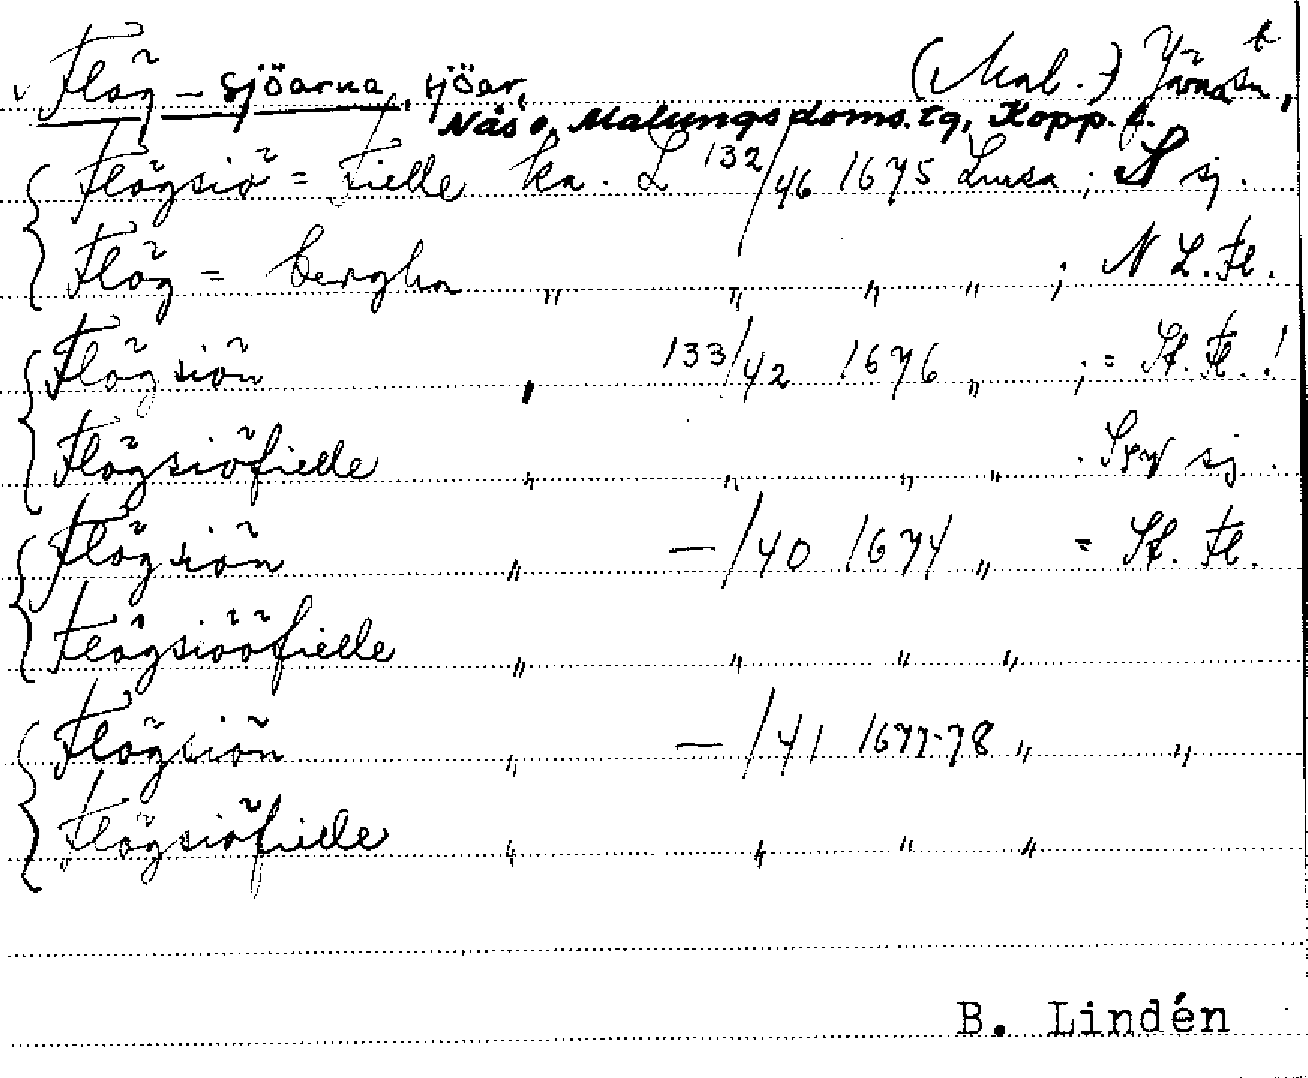 Flög-sjöarna, sjöar, (Mal.-) Järna sn,
Näs o. Malungs doms.tg, Kopp. l.
Flögsiö = Fielle ka. L 132/46 1675 Limsa ; S sj.
Flög = bergha " " " " ; N L. Fl.
Flögsiön " 133/42 1676 " ; = St. Fl. !
Flögsiöfielle " " " " sj.
Flögsiön " —/40 1674 " = St. Fl.
Flögsiööfielle " " " "
Flögsiön " —/41 1677-78 " "
Flögsiöfielle " " " "
B. Lindén